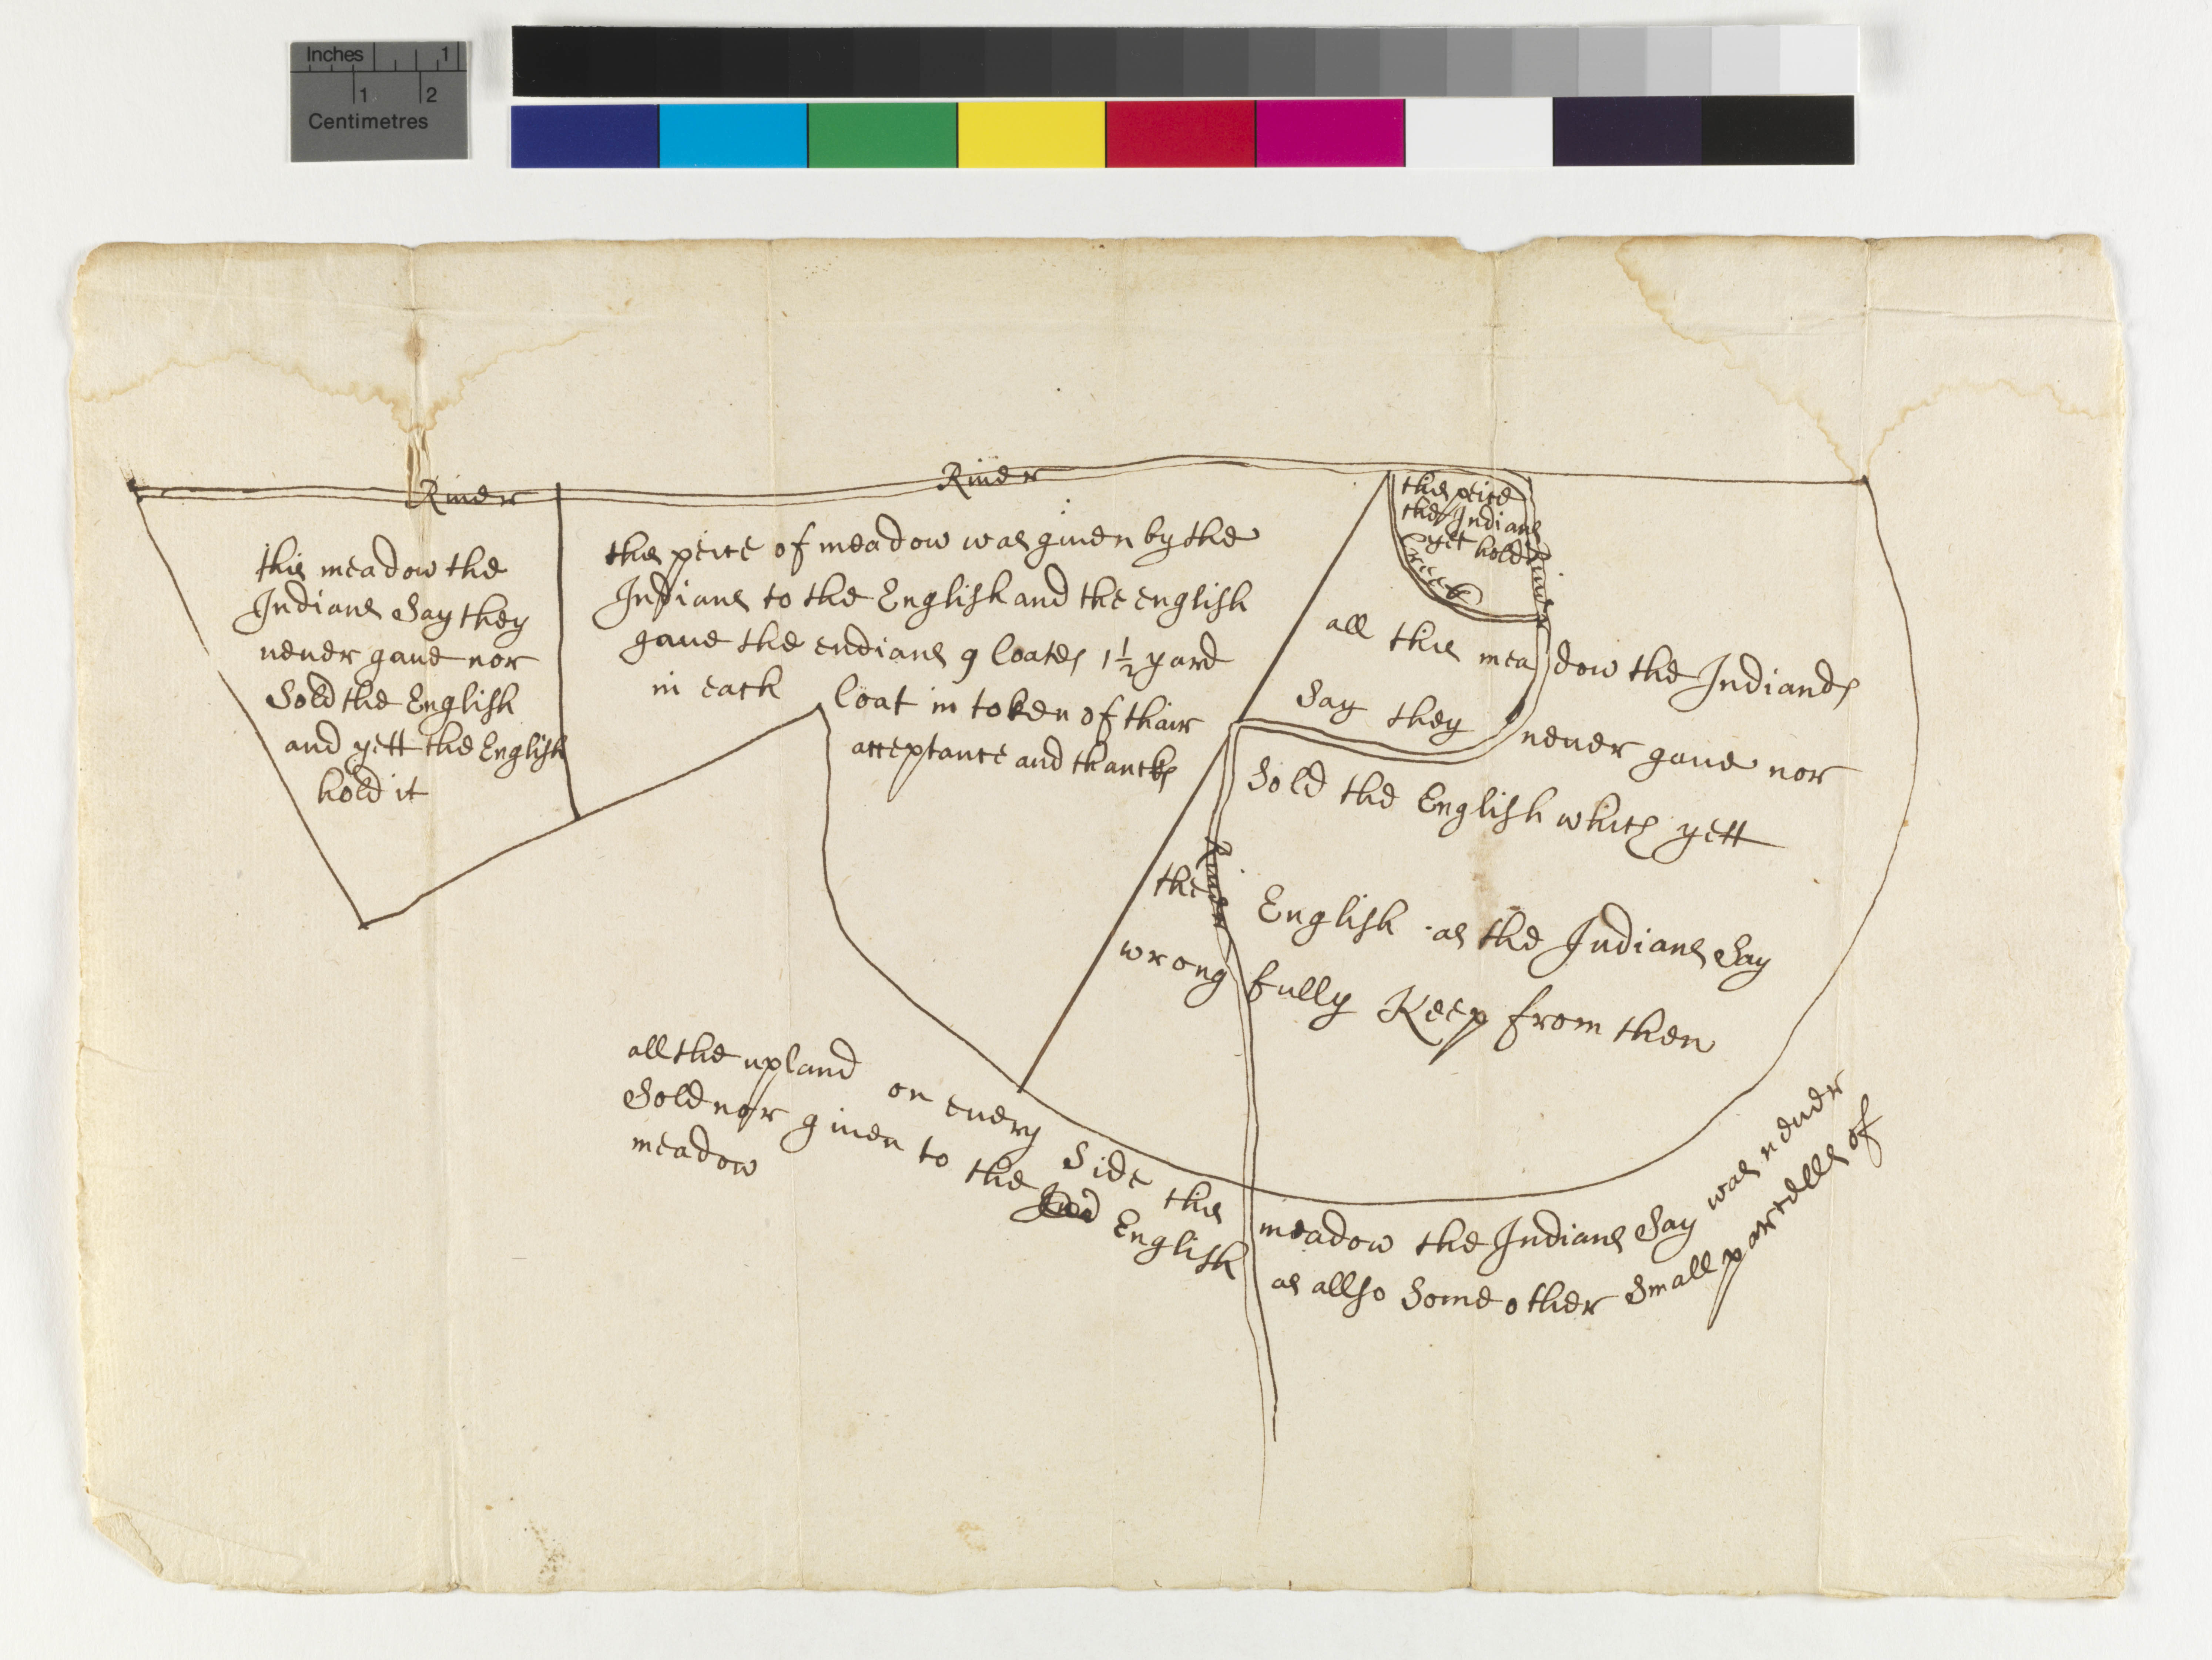 Inches 1
1 2
Centimetres
Riuer
Riuer
this meadow the
Indians Say they
neuer gaue nor
Sold the English
and yett the English
hold it
this peice of meadow was giuen by the
Indians to the English and the english
gaue the endians 9 Coates 1½ yard
in each Coat in token of thair
acceptance and thancks
this peice
the Indians
yet hold
Creek
Riuer
all this meadow the Indiands
Say they neuer gaue nor
Sold the English which yett
the English as the Indians Say
wrongfully Keep from then
Riuer
all the upland on euery Side this meadow the Indians Say was neuer
Sold nor giuen to the Ind English as allso Some other Small parcells of
meadow